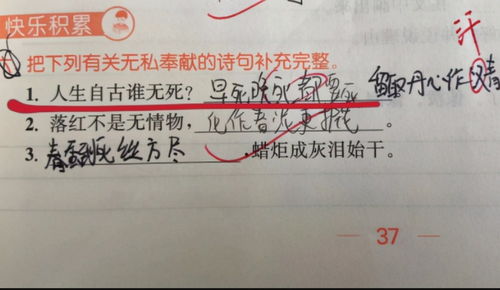 快乐积累
汗
把下列有关无私奉献的诗句补充完整。
1. 人生自古谁无死? 早死晚死都要死 留取丹心作青
2. 落红不是无情物, 化作春泥更护花。
3. 春蚕到死丝方尽,蜡炬成灰泪始干。
37